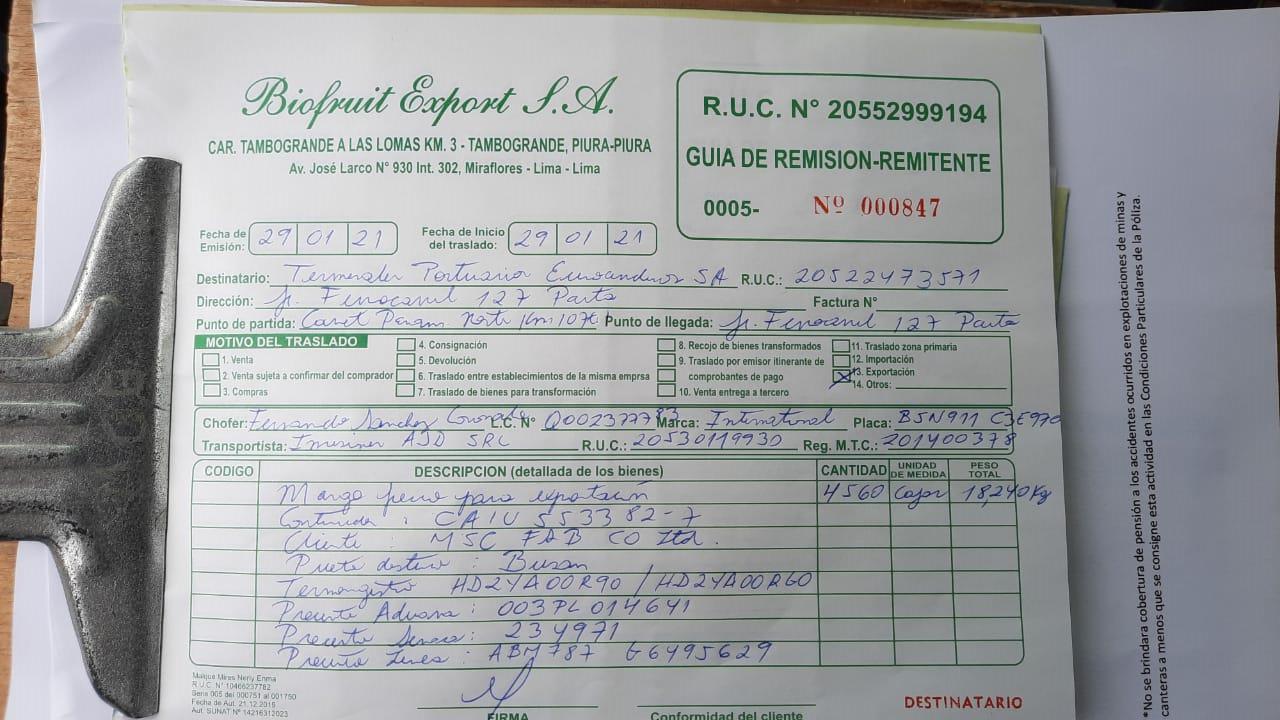 Biofruit Export S.A.
CAR. TAMBOGRANDE A LAS LOMAS KM. 3 - TAMBOGRANDE, PIURA-PIURA
Av. José Larco N° 930 Int. 302, Miraflores - Lima - Lima
R.U.C. N° 20552999194
GUIA DE REMISION-REMITENTE
0005- Nº 000847
Fecha de Emisión: 29 01 21 Fecha de Inicio del traslado: 29 01 21
Destinatario: Portuario Euroandinos SA R.U.C.: 20522473571
Dirección: Jr. Ferrocarril 127 Paita Factura N°
Punto de partida: Norte Km 1076 Punto de llegada: Jr. Ferrocarril 127 Paita
MOTIVO DEL TRASLADO
1. Venta
2. Venta sujeta a confirmar del comprador
3. Compras
4. Consignación
5. Devolución
6. Traslado entre establecimientos de la misma emprsa
7. Traslado de bienes para transformación
8. Recojo de bienes transformados
9. Traslado por emisor itinerante de
comprobantes de pago
10. Venta entrega a tercero
11. Traslado zona primaria
12. Importación
13. Exportación
14. Otros:
Chofer: Fernando Sanchez L.C. N° Marca: International Placa: BSN911
Transportista: AJD SRL R.U.C.: 20530119930 Reg. M.T.C.: 201400378
CODIGO DESCRIPCION (detallada de los bienes) CANTIDAD UNIDAD DE MEDIDA PESO TOTAL
Mango para exportación 4560 Cajas 18,240 Kg
: CAIU 553382-7
Cliente : MSC FAB CO Ltd.
destino : Busan
Termoregistro HD2YA00R90 / HD2YA00R60
Precinto Aduana : 003PL014641
Precinto Senasa : 234971
Precinto Linea : G6495629
Malque Mires Nerly Enma
R.U.C. N° 10466237782
Serie 005 del 000751 al 001750
Fecha de Aut. 21.12.2015
Aut. SUNAT N° 14216312023
FIRMA
Conformidad del cliente
DESTINATARIO
*No se brindara cobertura de pensión a los accidentes ocurridos en explotaciones de minas y
canteras a menos que se consigne esta actividad en las Condiciones Particulares de la Póliza.